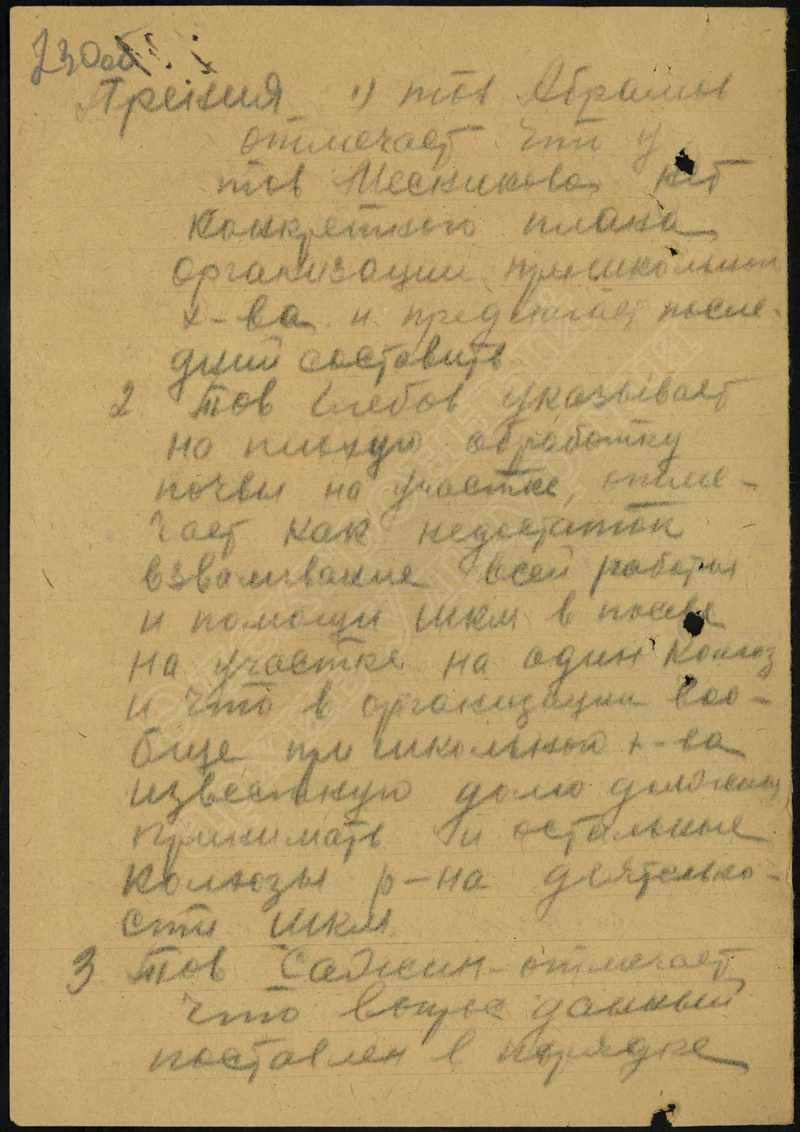 230об
Прения 1) тов Абрамов
отмечает что у
тов Месникова нет
конкретного плана
организации пришкольного
х-ва и предлагает после-
дний составить
2 Тов Глебов указывает
на плохую обработку
почвы на участке, отме-
чает как недостаток
взваливание всей работы
и помощи шкм в посеве
на участке на один колхоз
и что в организации воо-
бще пришкольного х-ва
известную долю должны
принимать и остальные
колхозы р-на деятельно-
сти шкм
3 Тов Сажин - отмечает
что вопрос данный
поставлен в порядке